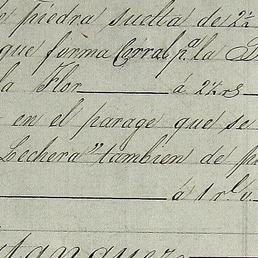 de piedra suelta de 2½
que forma Corral pª la
la Flor á 2½ rs
en el parage que se
Lechera" tambien de
á 1 rl v